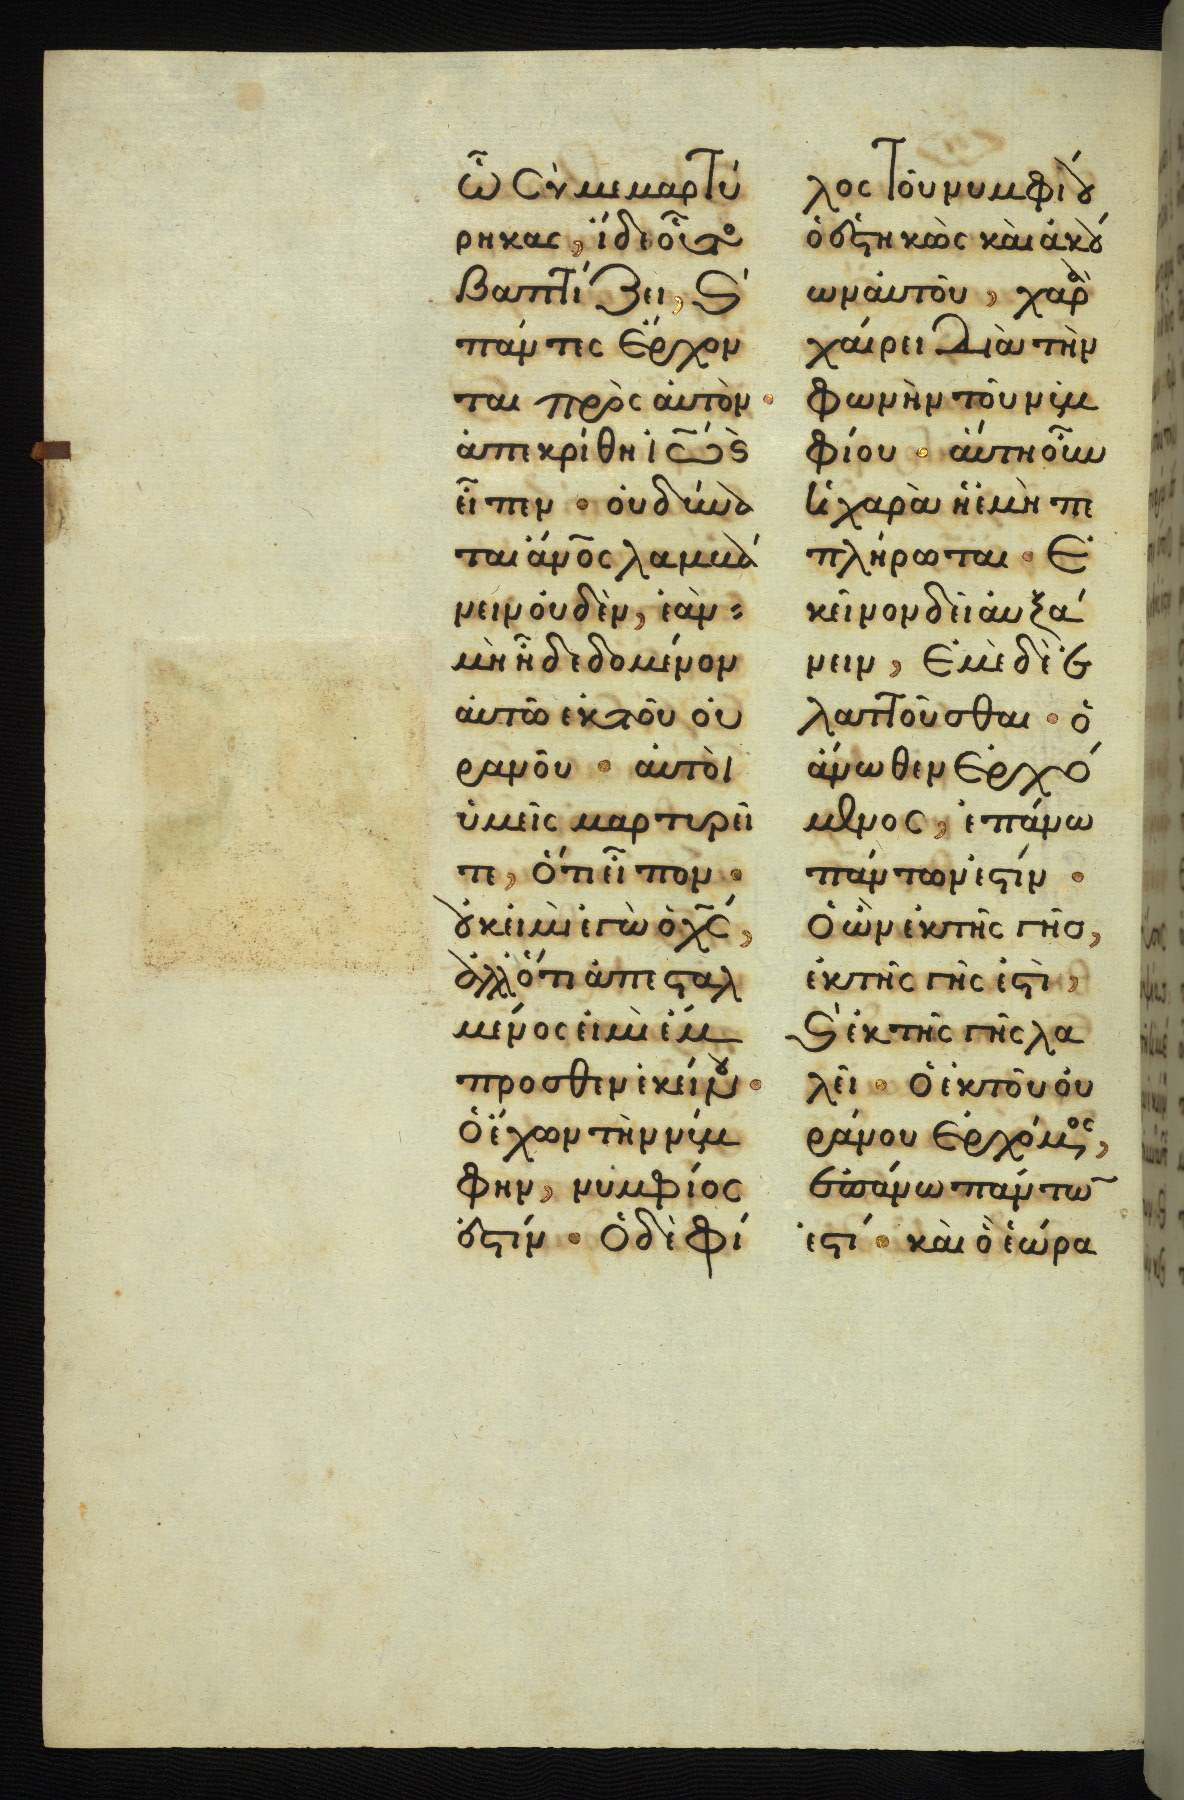 ᾧ σὺ μεμαρτύ
ρηκας, ἴδε οὗτος
βαπτίζει, ϗ
πάντες ἔρχον
ται πρὸς ἀυτὸν·
ἀπεκρίθη ἰω̅ς ϗ
εἶπεν· ὀυ δύνα
ται ἄν̅ος λαμβά
νειν ὀυδὲν, ἐὰν
μὴ ἦ δεδομένον
ἀυτῶ ἐκ τοῦ ὀυ
ρανοῦ· ἀυτοὶ
ὑμεῖς μαρτυρεῖ
τε, ὅτι εἶπον·
ȣκ εἰμὶ ἐγὼ ὁ χ̅ς,
ἀλλ' ὅτι ἀπεσταλ
μένος εἰμὶ ἔμ
προσθεν ἐκείνȣ·
ὁ ἔχων τὴν νύμ
φην, νυμφίος
ἐστίν· ὁ δὲ φί
λος τοῦ νυμφίȣ
ὁ ἑστηκὼς καὶ ἀκȣ́
ων ἀυτοῦ, χαρᾶ
χαίρει διὰ τὴν
φωνὴν τοῦ νυμ
φίου· ἁύτη οὖν
ἡ χαρὰ ἡ ἐμὴ πε
πλήρωται· ἐ
κεῖνον δεῖ ἀυξά
νειν, ἐμὲ δὲ ἐ
λαττοῦσθαι· ὁ
ἄνωθεν ἐρχό
μενος, ἐπάνω
πάντων ἐστίν·
ὁ ὢν ἐκ τῆς γῆς,
ἐκ τῆς γῆς ἐστὶ,
ϗ ἐκ τῆς γῆς λα
λεῖ· ὁ ἐκ τοῦ ὀυ
ράνου ἐρχόμενος,
ἐπάνω πάντω̅
ἐστί· καὶ ὃ ἑώρα